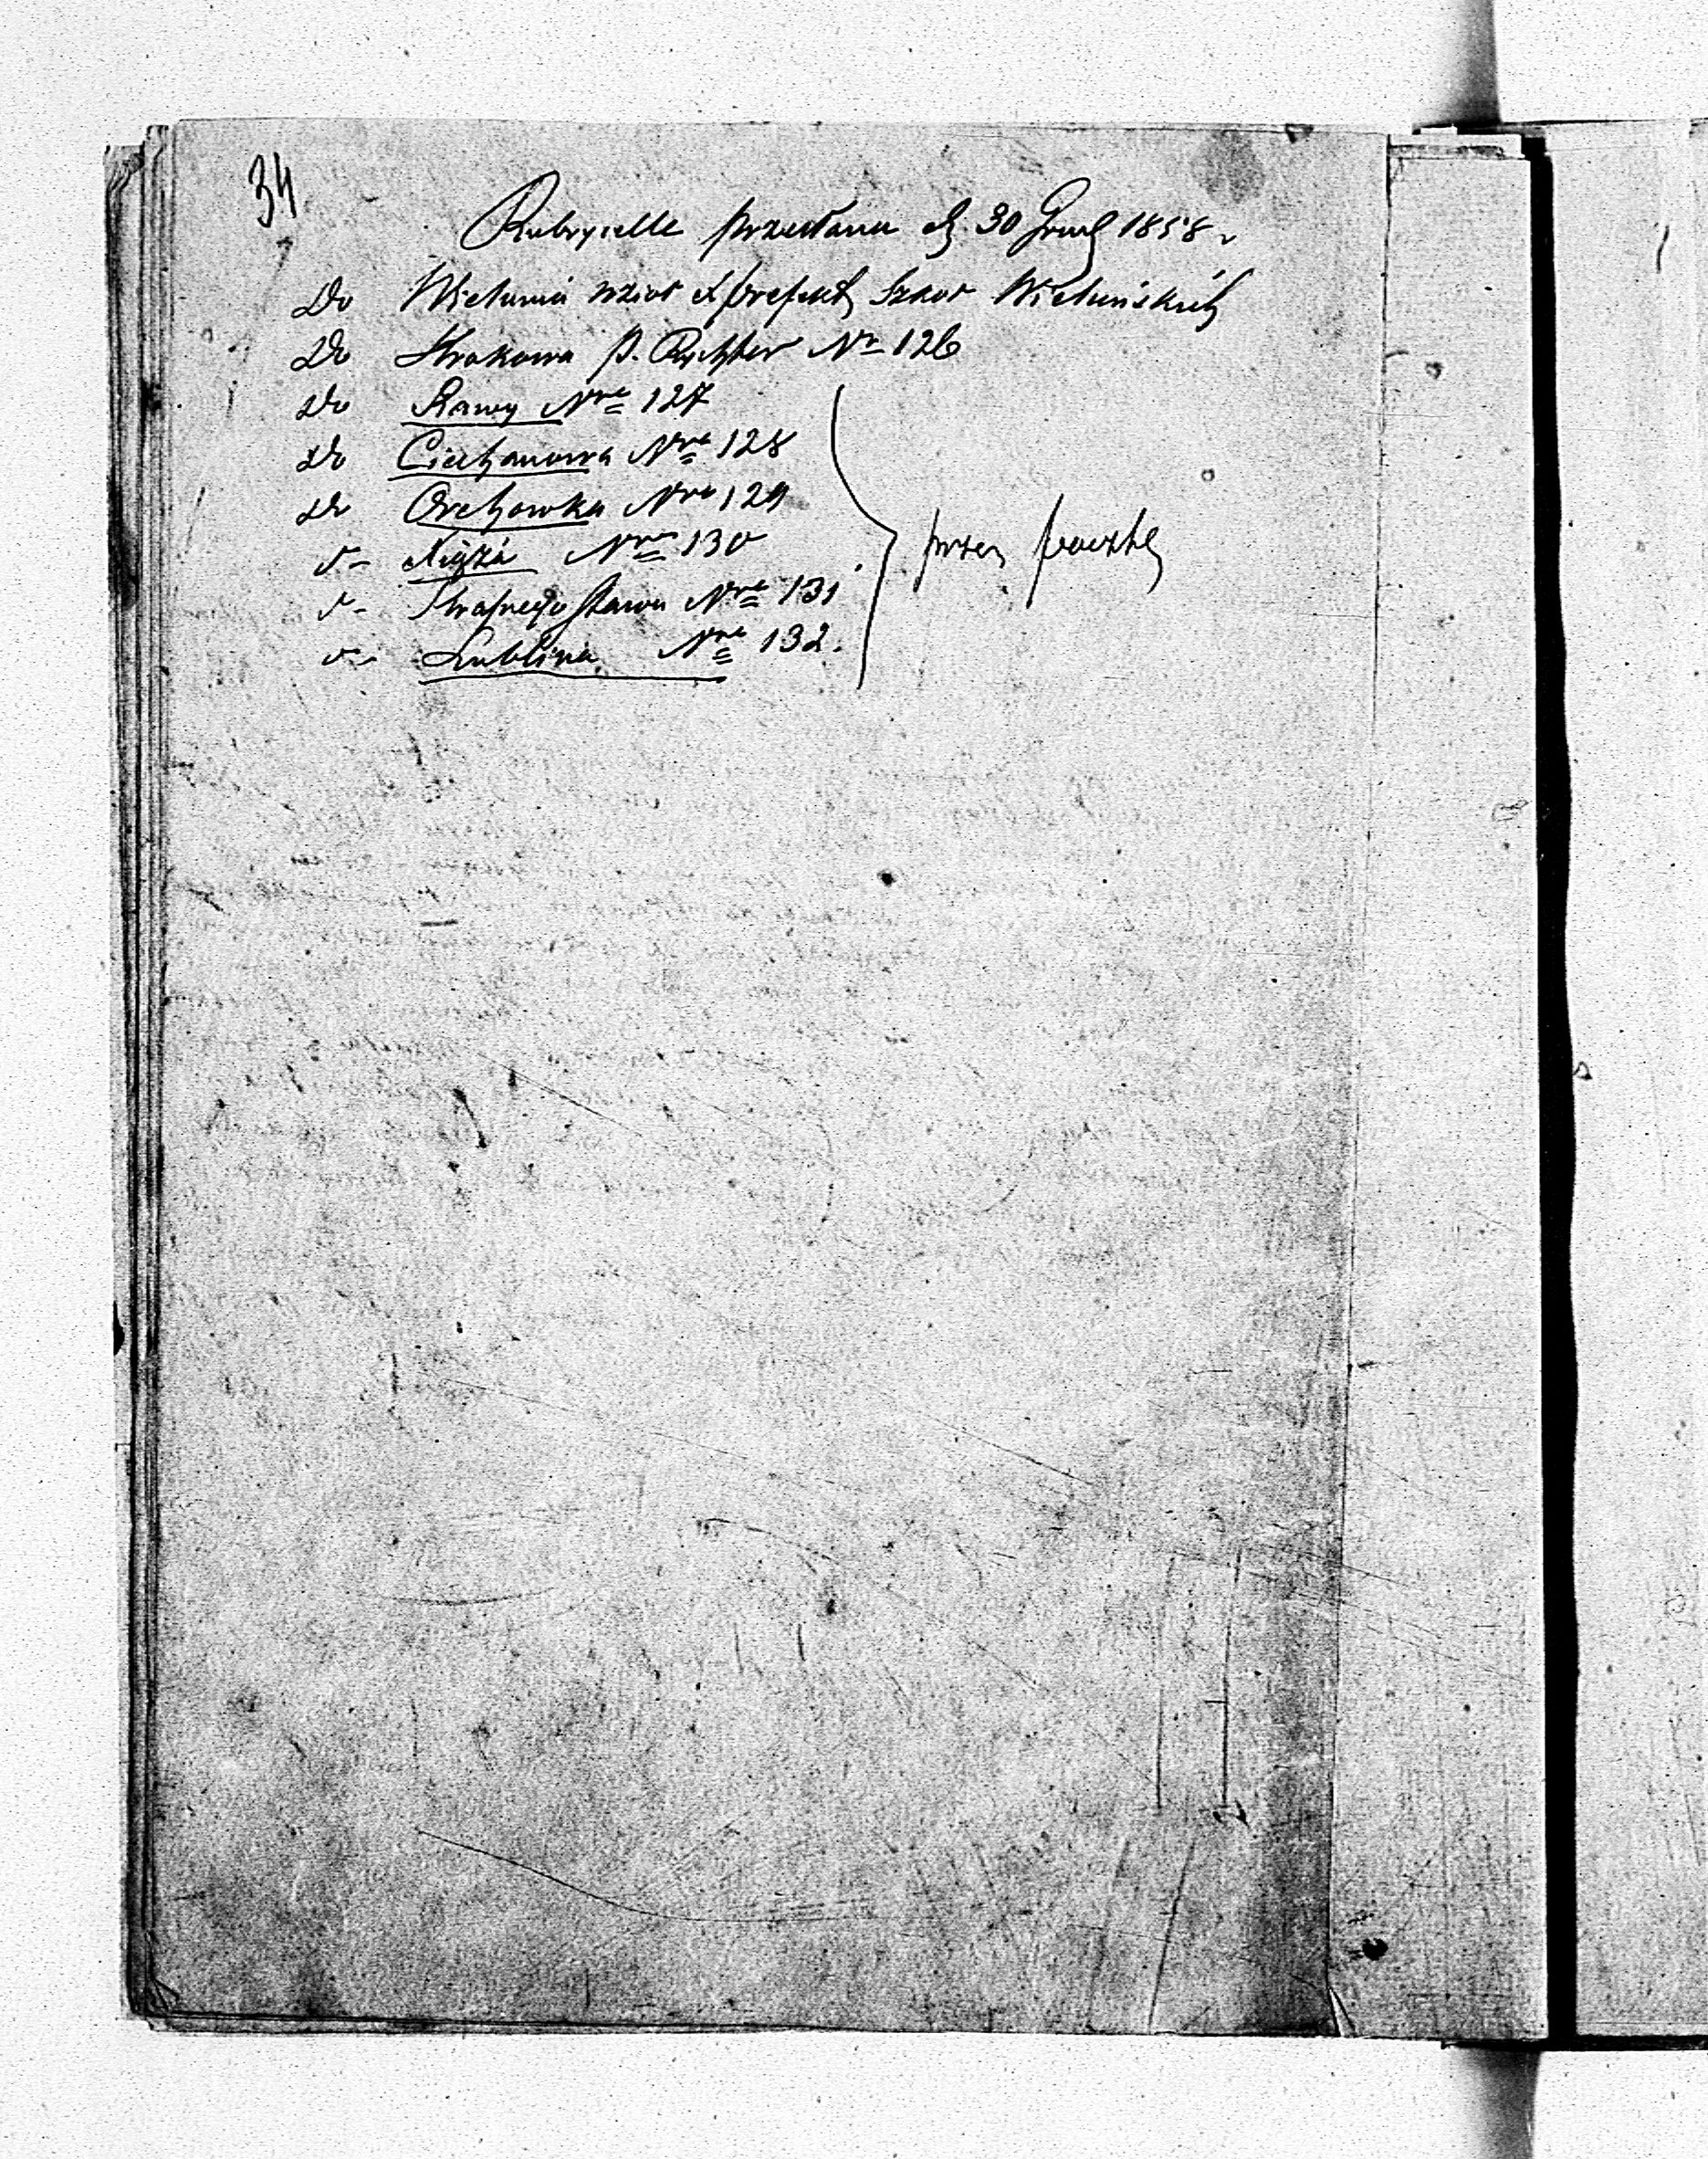 34
Rubrycelle przesłane d. 30 Grud 1858 r
Do Wielunia wziął X prefekt Szkół Wieluńskich
Do Krakowa P. Rychter Nr 126
Do Rawy Nre 127
Do Ciechanowa Nre 128
Do Orchowka Nre 129
d- Xięża Nre 130
d- Krasnego stawu Nre 131
d- Lublina Nre 132.
przez pocztę